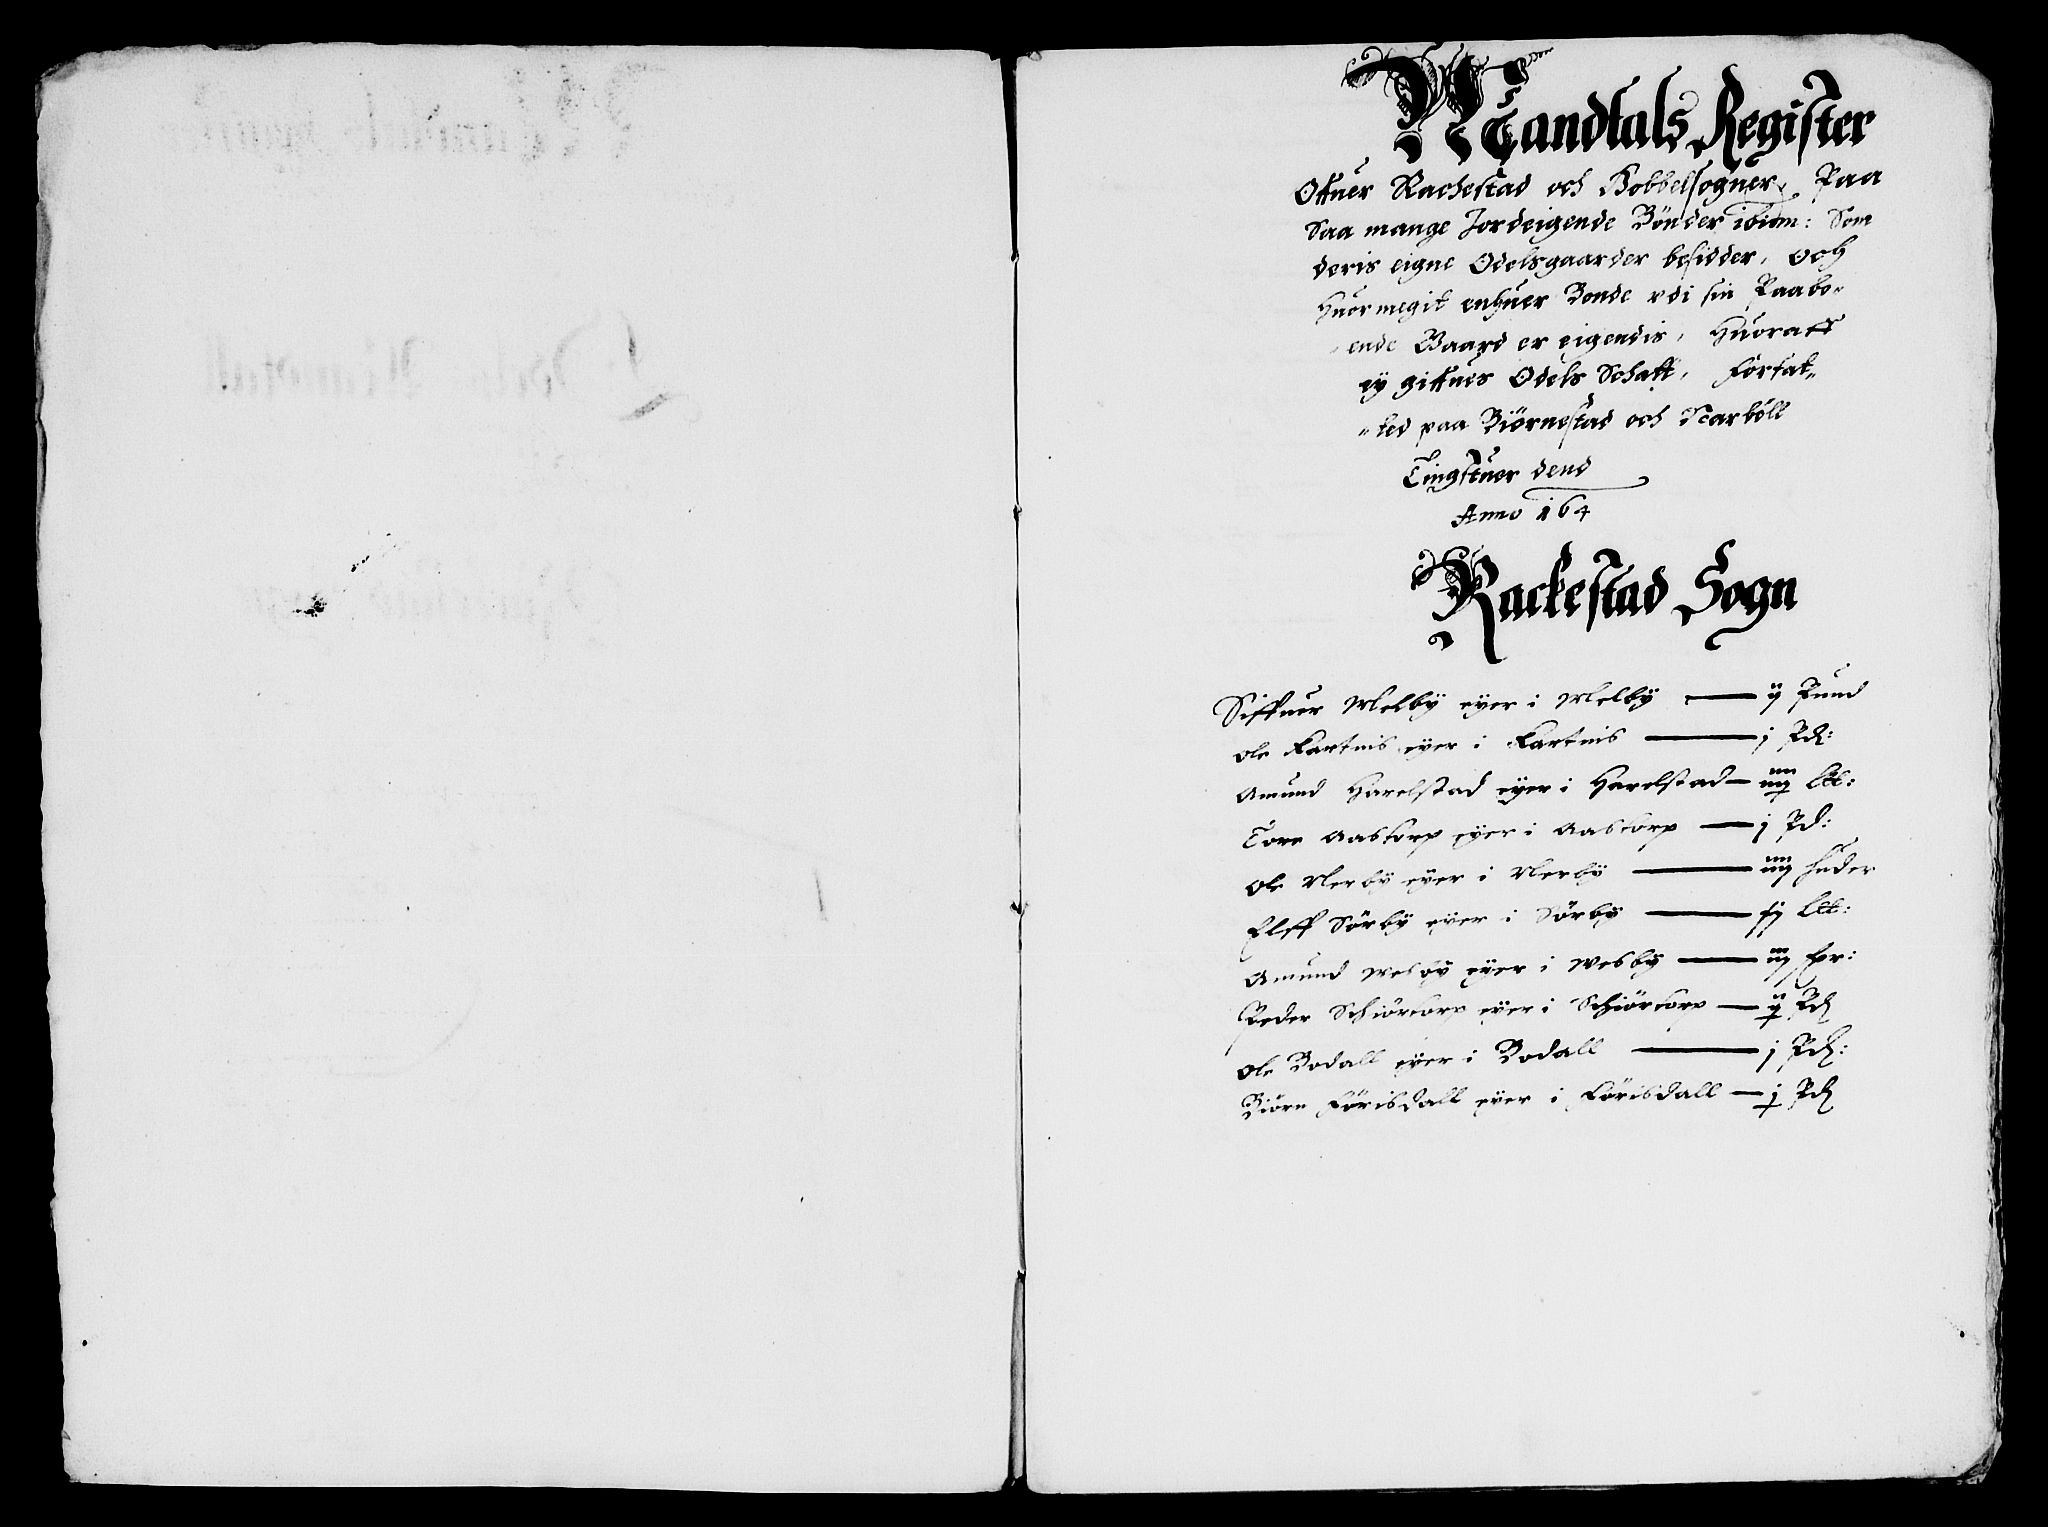 Mandtals Register
Offuer Rachestad och Hobbelsogner, Paa
Saa mange Jordeigende Bönder ibidm: Som
deris eigne Odelsgaarder besidder, och
Huormegit enhuer Bonde vdi sin Paabo-
ende Gaard er eigendis, Huoraff
ey giffues Odels Schatt, Forfat-
-ted paa Biörnestad och Scarböll
Tingstuer dend
Anno 164
Rackestad Sogn
Siffuer Melbÿ eyer i Melbÿ — ij Pund
Ole Kartnis eyer i Kartnis — j Pd:
Amund Harelstad eyer i Harelstad — Ltt:
Tore Aastorp eyer i Aastorp — j Pd:
Ole Nerbÿ eyer i Nerbÿ — iiij huder
Elff Sörbÿ eyer i Sörbÿ — Ltt:
Amund Wesbÿ eyer i Wesbÿ — fpr:
Peder Schiörtorp eyer i Schiörtorp — Pd
Ole Bodall eyer i Bodall — j Pd:
Biörn Förisdall eyer i Förisdall — Pd